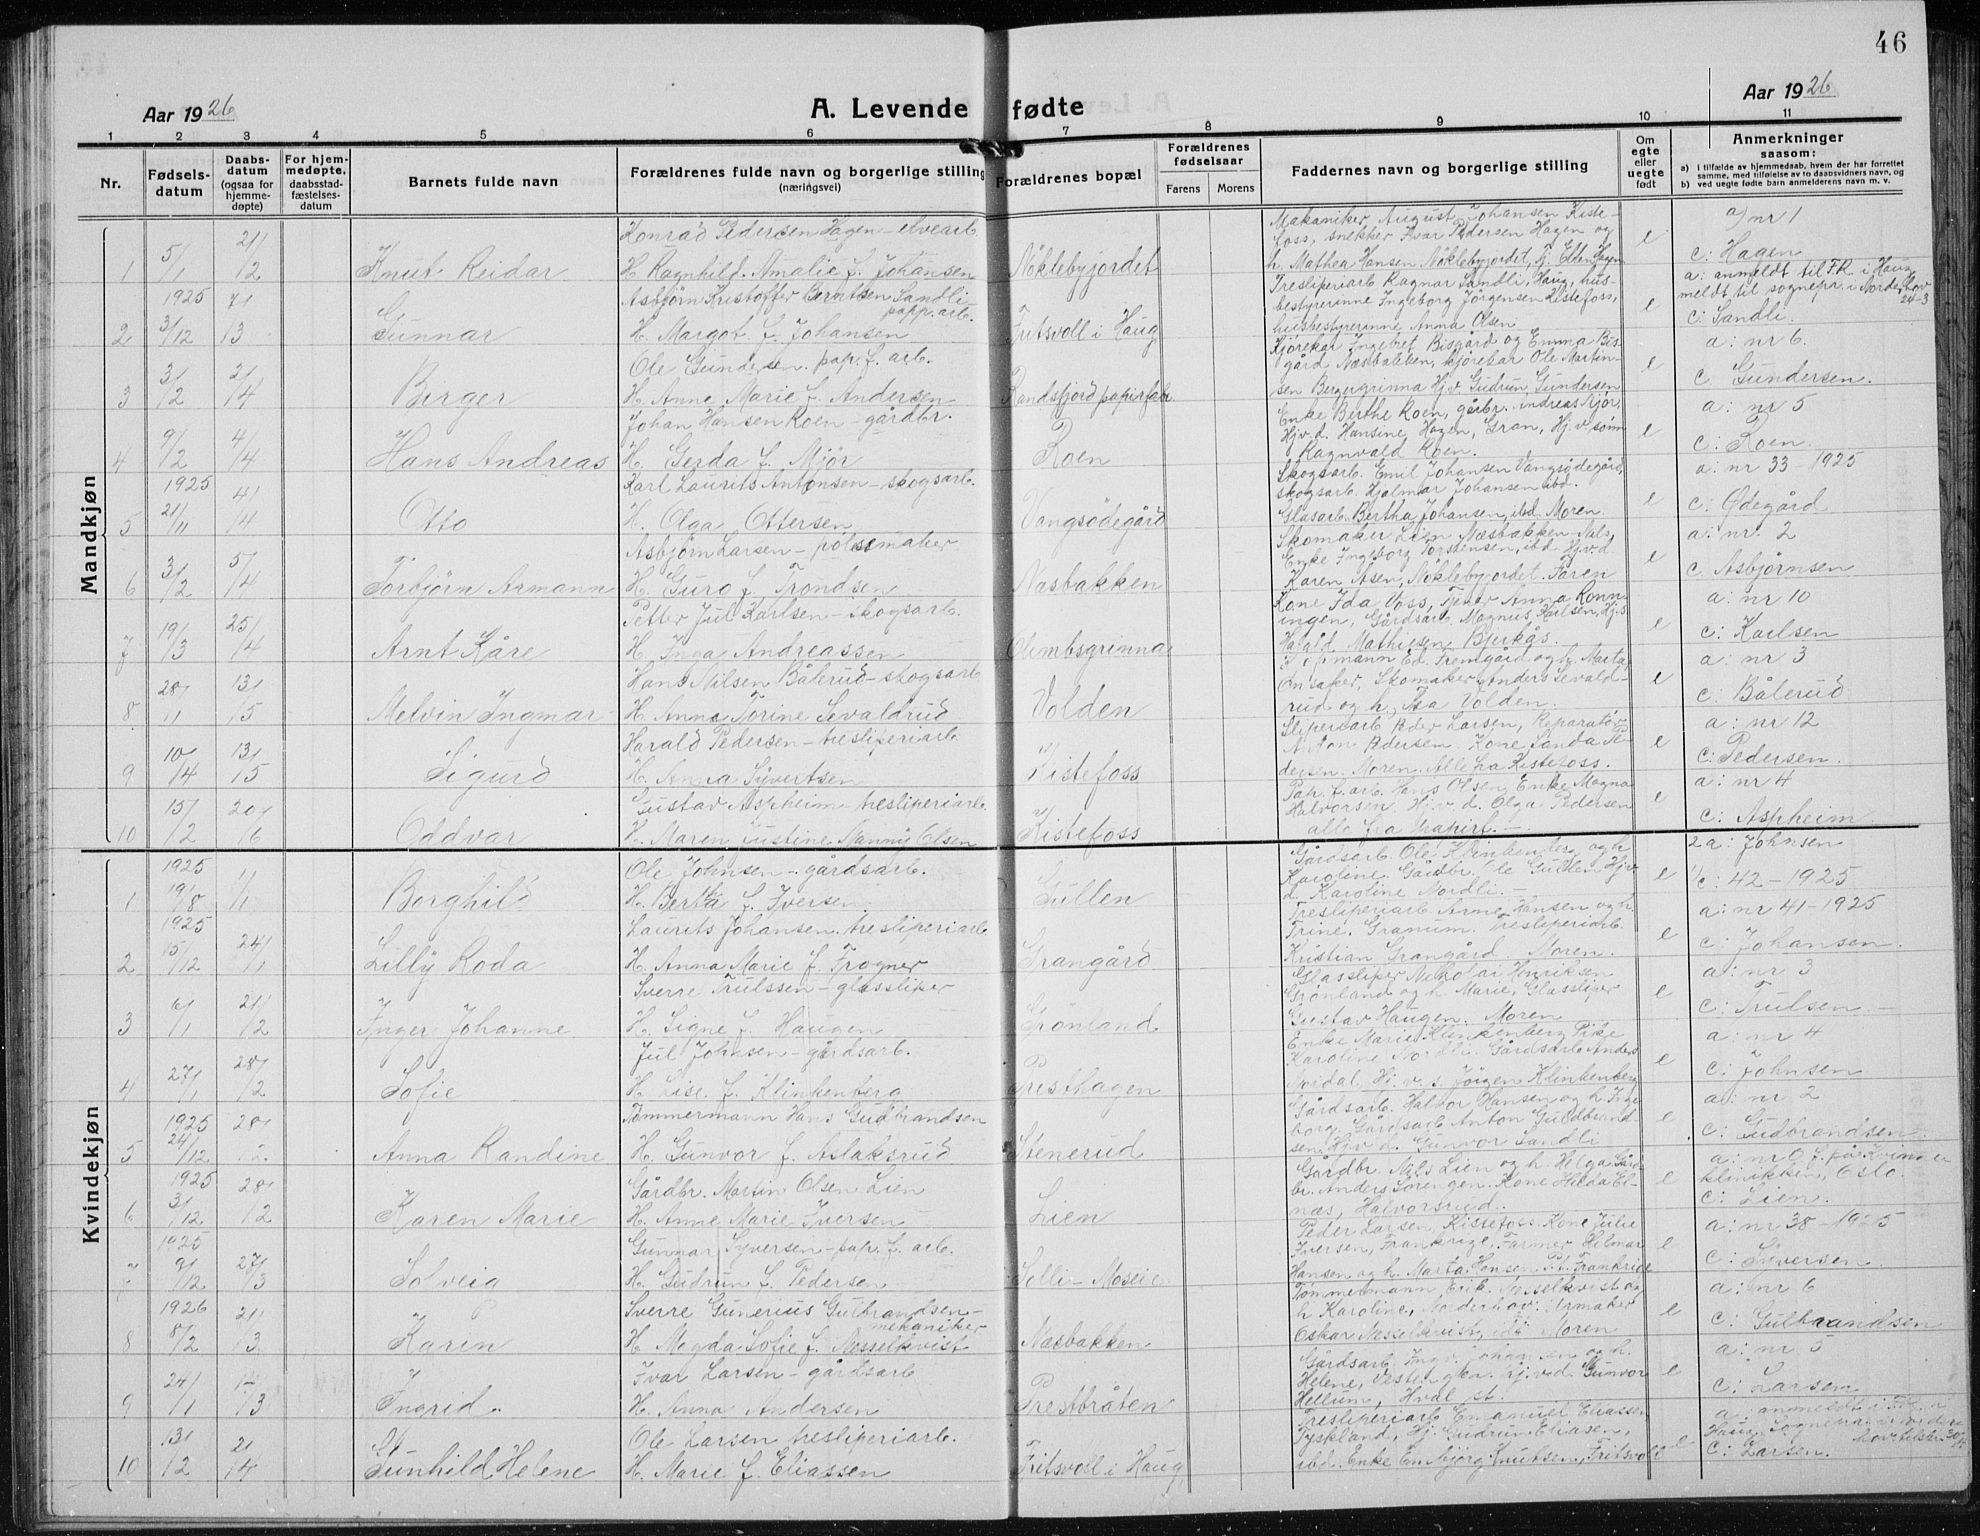 46
Aar 1926
A. Levende fødte
Aar 1926
1 2 3 4 5 6 7 8 9 10 11
Nr.
Fødsels-
datum
Daabs-
datum
(ogsaa for
hjemme-
døpte)
For hjem-
medøpte,
daabsstad-
fæstelses-
datum
Barnets fulde navn
Forældrenes fulde navn og borgerlige stilling
(næringsvei)
Forældrenes bopæl
Forældrenes
fødselsaar
Farens
Morens
Faddernes navn og borgerlige stilling
Om
egte
eller
uegte
født
Anmerkninger
saasom:
a) i tilfælde av hjemmedaab, hvem der har forrettet
samme, med tilføielse av to daabsvidners navn, og
b) ved uegte fødte barn anmelderens navn m. v.
Mandkjøn
1 5/1 21/2 Knut Reidar
Konrad Pedersen Hagen - elvearb.
H. Ragnhild Amalie f. Johansen
Nöklebyjordet
Makaniker August Johansen Kiste-
foss, snekker Ivar Pedersen Hagen og
h. Mathea Hansen Nöklebyjordet, Hj. Ellen Hagen
e
a) nr 1
c: Hagen
2 1925 3/12 7/3 Gunnar
Asbjörn Kristoffer Berntsen Sandli
papp. arb.
H. Margot f. Johansen
Fritsvoll i Haug
Tresliperiarb Ragnar Sandli, Haug, hus-
bestyrerinne Ingeborg Jörgensen Kistefoss,
husbestyrerinne Anna Olsen
e
a: anmeldt til F.R. i Haug
meldt til sognepr. i Norderhov
24-3
c: Sandli.
3 3/2 2/4 Birger
Ole Gundersen. pap. f. arb.
H. Anne Marie f. Andersen
Randsfjord papirfabr
Kjörekar Ingebret Bisgård og Emma Bis-
gård Næsbakken, kjörekar Ole Martin-
sen Bergergrinna Hj.v. Gudrun Gundersen
e
a: nr 6.
c. Gundersen.
4 9/2 4/4 Hans Andreas
Johan Hansen Roen - gårdbr.
H. Gerda f. Mjör
Roen
Enke Berthe Roen, gårbr. Andreas Mjör,
Hjv.d. Hansine Hagen, Gran, Hj.v. sönn
Ragnvald Roen.
e
a: nr 5
c: Roen.
5 1925 21/11 4/4 Otto
Karl Laurits Antonsen - skogsarb.
H. Olga Ottersen
Vangsödegård
Skogsarb. Emil Johansen Vangsödegård,
skogsarb. Hjalmar Johansen ibd.
Glasarb. Bertha Johansen, ibd. Moren
e
a: nr 33 - 1925
c: Ødegård
6 3/2 5/4 Torbjörn Armann
Asbjörn Larsen - pölsemaker
H. Guro f. Trondsen
Næsbakken
Skomaker Lien Næsbakken Nils,
Enke Ingeborg Torstensen, ibd. Hj.v.d.
Karen Åsen, Nöklebyjordet. Faren
e
a: nr. 2
c. Asbjörnsen
7 19/3 25/4 Arnt Kåre
Petter Jul Karlsen - skogsarb.
H. Inga Andreassen
Olimbsgrinna
Kone Ida Voss, Tjener Anna Rönn-
ingen, Gårdsarb. Magnus Karlsen, Hj.s.
Harald Mathiesen Bjerkås.
e
a: nr 10
c: Karlsen
8 28/1 13/5 Melvin Ingmar
Hans Nilsen Bålerud - skogsarb
H. Anna Torine Sevaldrud
Volden
Ed. Fremgård og h. Marta,
Onsaker, Skomaker Anders Sevald-
rud og h. Åsa Volden.
e
a: nr 3
c: Bålerud
9 10/4 13/5 Sigurd
Harald Pedersen - tresliperiarb.
H. Anna Syvertsen
Kistefoss
Sliperiarb Peder Larsen, Reparatör
Anton Pedersen. Kone Landa Pe-
dersen. Moren. Alle fra Kistefoss.
e
a: nr 12
c: Pedersen.
10 15/2 20/6 Oddvar
Gustav Aspheim - tresliperiarb.
H. Maren Justine Nanny Olsen
Kistefoss
Pap. f. arb. Hans Olsen, Enke Magna
Halvorsen, Hj.v.d. Olga Pedersen
alle fra
e
a: nr 4
c: Aspheim
Kvindekjøn
1 1925 19/8 1/1 Borghild
Ole Johnsen - gårdsarb.
H. Berta f. Iversen
Gullen
Gårdsarb. Ole Klinkenberg og h.
Karoline. Gårdbr. Ole Gullen Hj.v.
d. Karoline Nordli. -
e
2a: Johnsen
1/c: 42 - 1925
2 1925 15/12 24/1 Lilly Roda
Laurits Johansen. tresliperiarb
H. Anna Marie f. Frogner
Grangård
Tresliperiarb. Arne Hansen og h.
Trine. Granum. Tresliperiarb.
Kristian Grangård. Moren.
e
a: nr 41 - 1925
c: Johansen.
3 6/1 21/2 Inger Johanne
Sverre Trulssen - glassliper
H. Signe f. Haugen
Grönland
Glassliper Nikolai Henriksen
Grönland og h. Marie, Glassliper
Gustav Haugen. Moren
e
a: nr 3
c: Trulsen
4 27/1 28/2 Sofie
Jul Johnsen - gårdsarb.
H. Lise f. Klinkenberg
Presthagen
Enke Marie Klinkenberg Pike
Karoline Nordli. Gårdsarb Anders
Nordal, Hj. v. s. Jörgen Klinkenberg
e
a: nr 4
c: Johnsen
5 1925 24/12 28/2 Anna Randine
Tömmermann Hans Gudbrandsen
H. Gunvor f. Aslaksrud
Stenerud
Gårdsarb. Halvor Hansen og h. Inge
borg. Gårdsarb Anton Guldbrand-
sen. Hj.v.d. Gunvor Sandli
e
a: nr 2
c: Gudbrandsen.
6 1925 3/12 28/2 Karen Marie
Gårdbr. Martin Olsen Lien
H. Anne Marie Iversen
Lien
Gårdbr. Nils Lien og h. Helga Gård-
br. Anders Sörengen. Kone Hilda El-
næs, Halvorsrud.
e
a: nr 0 f. på Kvinne
klinikken, Oslo.
c: Lien.
7 1925 9/12 27/3 Solveig
Gunnar Syversen - pap. f. arb.
H. Gudrun f. Pedersen
Solli - Moseie
Peder Larsen, Kistefoss. Kone Julie
Iversen, Frankrige, Farmer Hilmar
Hansen og h. Marta Hansen Pt. Frankrige
e
a: nr 38 - 1925
c: Syversen
8 1926 8/2 21/3 Karen
Sverre Gunerius Gulbrandsen -
mekaniker
H. Magda Sofie f. Nesselkvist
Næsbakken
Tömmermann Erik Nesselkvist og
h Karoline, Norderhov. Urmaker
Oskar Nesselkvist, ibd Moren
e
a: nr 6
c: Gulbrandsen
9 24/1 14/3 Ingrid.
Ivar Larsen - gårdsarb
H. Anna Andersen
Prestbråten
Gårdsarb. og h.
Helene, Hj.v.d. Gunvor
Hellum, Hval st.
e
a: nr 5
c: Larsen
10 13/2 2/4 Gunhild Helene
Ole Larsen tresliperiarb.
H. Marie f. Eliassen
Fritsvoll i Haug
Tresliperiarb Emanuel Eliassen
Tyskland, Hj. Gudrun Eliasen,
ibd. Enke Embjörg Knutsen, Fritsvoll
e
a: anmeldt i F.R. i
Haug. Sognepr. i Norder
hov
c: Larsen.